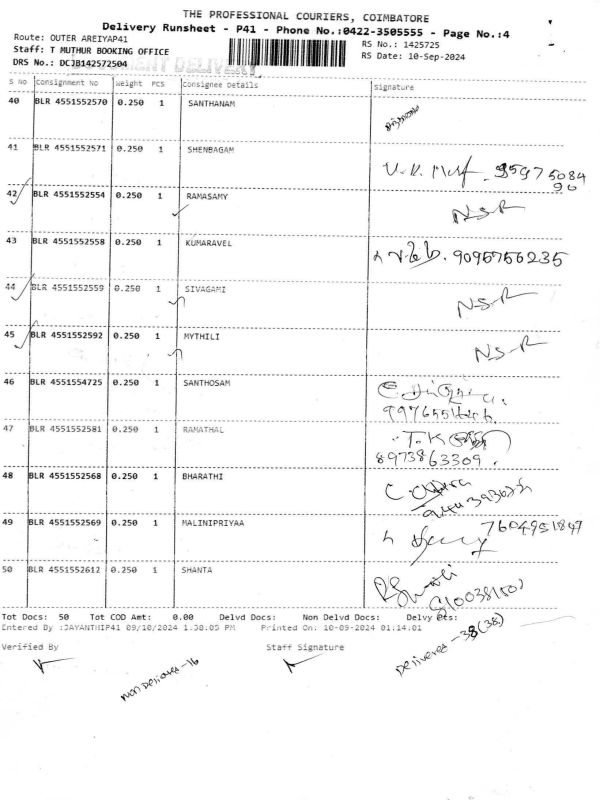 THE PROFESSIONAL COURIERS, COIMBATORE
Delivery Runsheet - P41 - Phone No.:0422-3505555 - Page No.:4
Route: OUTER AREIYAP41
RS No.: 1425725
Staff: T MUTHUR BOOKING OFFICE
RS Date: 10-Sep-2024
DRS No.: DCJB142572504
S No Consignment No Weight PCS Consignee Details Signature
40 BLR 4551552570 0.250 1 SANTHANAM
41 BLR 4551552571 0.250 1 SHENBAGAM
42 BLR 4551552554 0.250 1 RAMASAMY N.S.R
43 BLR 4551552558 0.250 1 KUMARAVEL 9095756235
44 BLR 4551552559 0.250 1 SIVAGAMI N.S.R
45 BLR 4551552592 0.250 1 MYTHILI N.S.R
46 BLR 4551554725 0.250 1 SANTHOSAM
47 BLR 4551552581 0.250 1 RAMATHAL T.K
8973863309.
48 BLR 4551552568 0.250 1 BHARATHI
49 BLR 4551552569 0.250 1 MALINIPRIYAA 7604951847
50 BLR 4551552612 0.250 1 SHANTA
Tot Docs: 50 Tot COD Amt: 0.00 Delvd Docs: Non Delvd Docs: Delvy Pts:
Entered By :JAYANTHIP41 09/10/2024 1:38:05 PM Printed On: 10-09-2024 01:14:01
Verified By Staff Signature
Delivered - 38 (38)